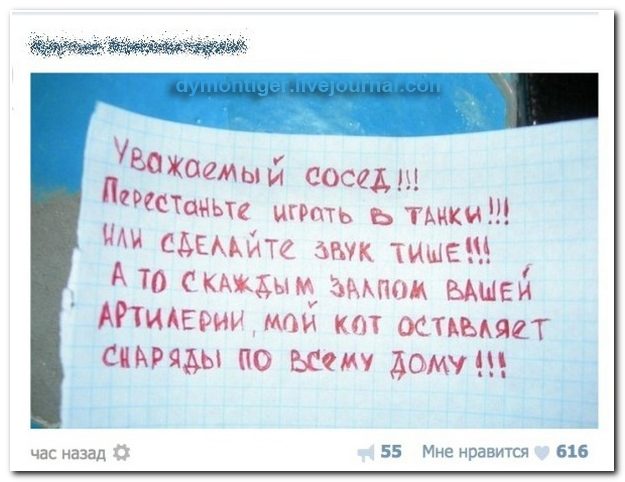 dymontiger.livejournal.com
Уважаемый сосед!!!
Перестаньте играть в танки!!!
Или сделайте звук тише!!!
А то с каждым залпом вашей
артилерии, мой кот оставляет
снаряды по всему дому!!!
час назад 55 Мне нравится 616